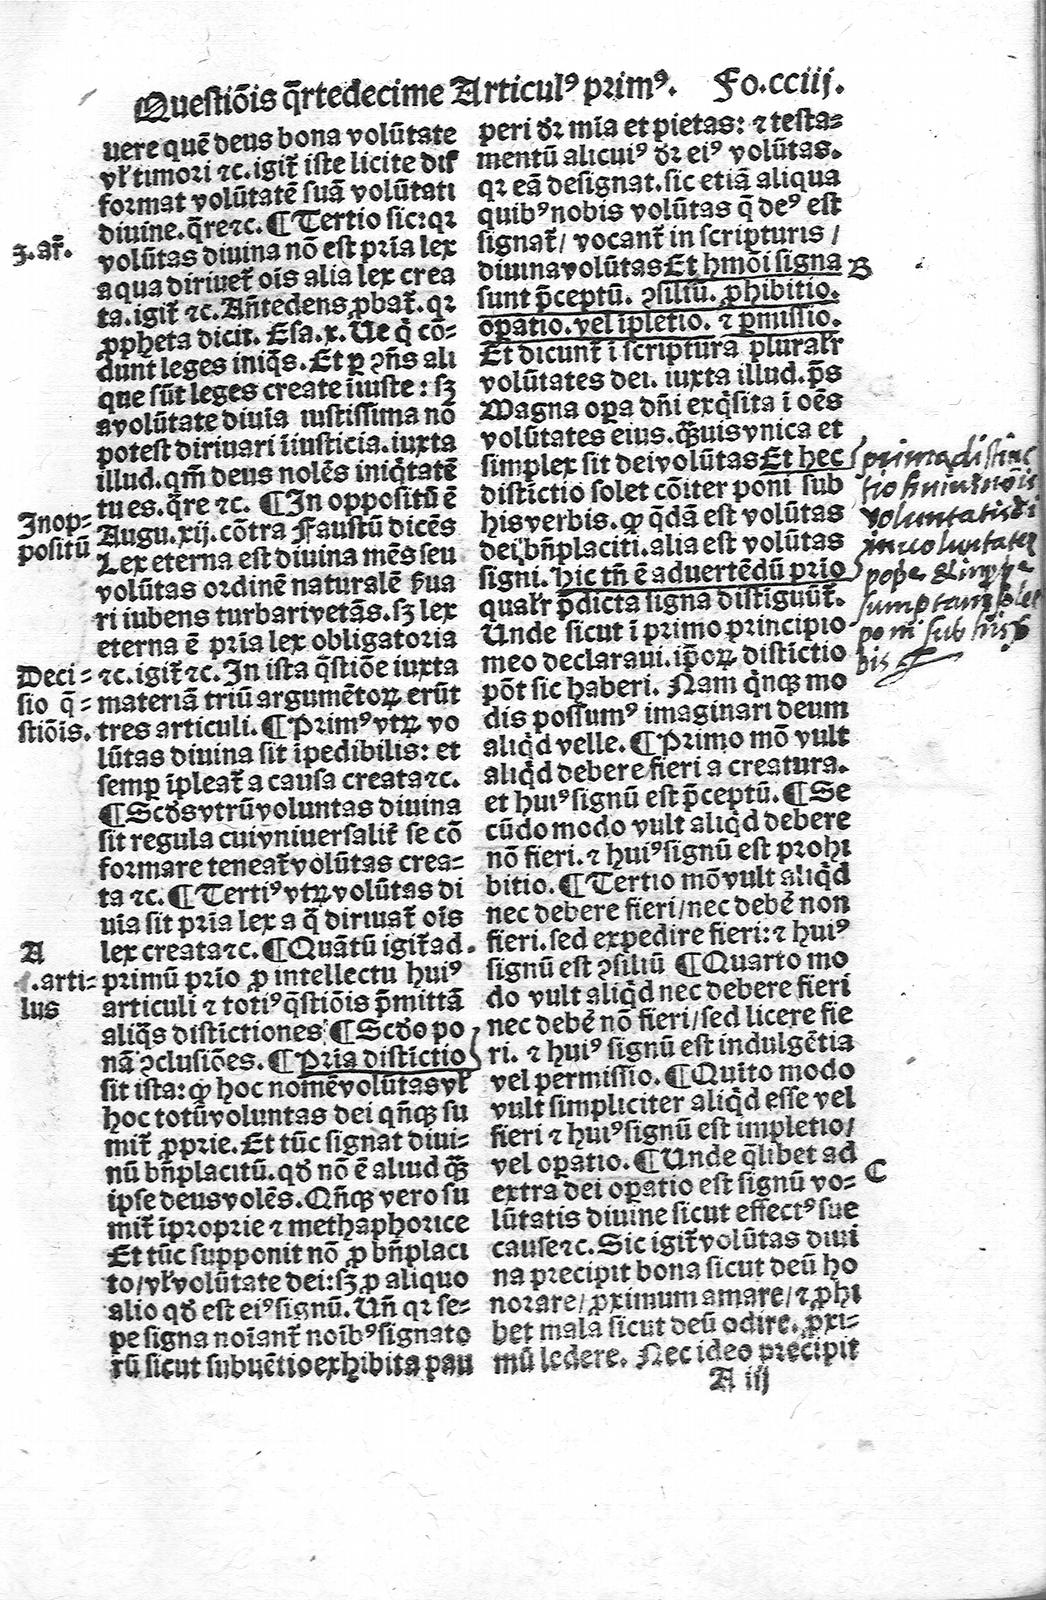 Questiōis q̄rtedecime Articulꝰ primꝰ. Fo.cciij.
uere quē deus bona volūtate
vl̕ timori ⁊c. igit̄ iste licite dis
format volūtatē suā volūtati
diuine. q̄re ⁊c. ¶ Tertio sic: qꝛ
3. ar̄.
volūtas diuina nō est pria lex
a qua diriuet̄ ois alia lex crea
ta. igit̄ ⁊c. Añtedens ꝓbat̄. qꝛ
ꝓpheta dicit. Esa. x. Ue q̇ cō-
dunt leges iniq̄s. Et ꝑ ꝯñs ali
que sūt leges create iniuste: sꝫ
a volūtate diuia iustissima nō
potest diriuari iniusticia. iuxta
illud. qm̄ deus nolēs iniq̇tatē
tu es. q̄re ⁊c. ¶ In oppositū ē
Inop-
positū
Augu. xij. cōtra Faustū dicēs
Lex eterna est diuina mēs seu
volūtas ordinē naturalē ẜua
ri iubens turbari vetās. sꝫ lex
eterna ē pria lex obligatoria
Deci-
sio q̄-
stiōis.
⁊c. igit̄ ⁊c. In ista q̄stiōe iuxta
materiā triū argumētoꝝ erūt
tres articuli. ¶ Primꝰ vtꝝ vo
lūtas diuina sit ipedibilis: et
semp̱ ipleat̄ a causa creata ⁊c.
¶ Scd̄s vtrū voluntas diuina
sit regula cui vniuersalit̄ se cō
formare teneat̄ volūtas crea-
ta ⁊c. ¶ Tertiꝰ vtꝝ volūtas di
uia sit pria lex a q̄ diriuat̄ ois
A
lex creata ⁊c. ¶ Quātū igit̄ ad
.arti-
lus
primū prio ꝓ intellectu huiꝰ
articuli ⁊ totiꝰ q̄stiōis p̄mittā
aliq̄s distictiones. ¶ Scd̄o po
nā ꝯclusiōes. ¶ Pria distictio
sit ista: ꝙ hoc nomē volūtas vl̕
hoc totū voluntas dei qn̄qꝫ su
mit̄ ꝓprie. Et tūc signat diui-
nū bn̄placitū. qd̄ nō ē aliud qꝫ̄
ipse deus volēs. Qn̄qꝫ vero su
mit̄ iproprie ⁊ methaphorice
Et tūc supponit nō ꝓ bn̄placi
to/ vl̕ volūtate dei: sꝫ ꝓ aliquo
alio qd̄ est eiꝰ signū. Uñ qꝛ se-
pe signa noiant̄ noibꝰ signato
rū sicut subuētio exhibita pau
peri dr̄ mia et pietas: ⁊ testa-
mentū alicuiꝰ dr̄ eiꝰ volūtas.
qꝛ eā designat. sic etiā aliqua
quibꝰ nobis volūtas q̄ deꝰ est
signat̄/ vocant̄ in scripturis/
diuina volūtas Et hmōi signa
B
sunt p̄ceptū. ꝯsiliū. ꝓhibitio.
opatio. vel ipletio. ⁊ ꝑmissio.
Et dicunt̄ i scriptura pluralr̄
volūtates dei. iuxta illud. ps̄
Magna oꝑa dn̄i exq̇sita i oēs
volūtates eius. qꝫ̄uis vnica et
simplex sit dei volūtas Et hec
distictio solet cōiter poni sub
his verbis. ꝙ q̇dā est volūtas
dei bn̄placiti. alia est volūtas
signi. Hic tn̄ ē aduertēdū prio
qualr̄ p̄dicta signa distiguūt̄.
Unde sicut i primo principio
meo declaraui. ipoꝝ distictio
pōt sic haberi. Nam q̇nqꝫ mo
dis possumꝰ imaginari deum
aliq̇d velle. ¶ Primo mō vult
aliq̇d debere fieri a creatura.
et huiꝰ signū est p̄ceptū. ¶ Se
cūdo modo vult aliq̇d debere
nō fieri. ⁊ huiꝰ signū est prohi
bitio. ¶ Tertio mō vult aliq̇d
nec debere fieri/ nec debē non
fieri. sed expedire fieri: ⁊ huiꝰ
signū est ꝯsiliū ¶ Quarto mo
do vult aliq̇d nec debere fieri
nec debē nō fieri/ sed licere fie
ri. ⁊ huiꝰ signū est indulgētia
vel permissio. ¶ Quito modo
vult simpliciter aliq̇d esse vel
fieri ⁊ huiꝰ signū est impletio/
vel oꝑatio. ¶ Unde q̇libet ad
C
extra dei oꝑatio est signū vo-
lūtatis diuine sicut effectꝰ sue
cause ⁊c. Sic igit̄ volūtas diui
na precipit bona sicut deū ho
norare/ ꝓximum amare/ ⁊ ꝓhi
bet mala sicut deū odire. ꝓxi-
mū ledere. Nec ideo precipit
A iij
prima distinc
tio
voluntatis di
in voluntatem
prope & imprope
sumptam solet
poni sub his ver
bis